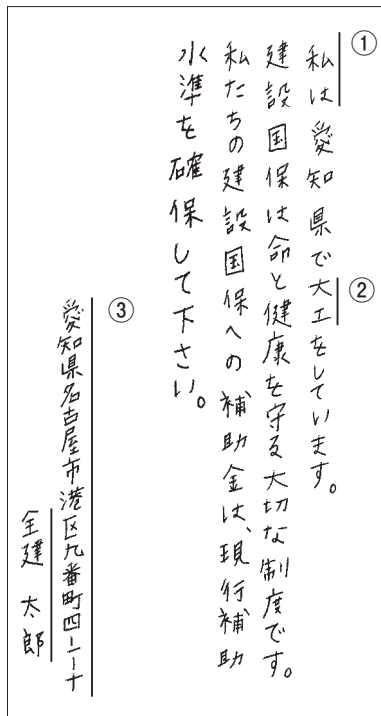 ①
私は愛知県で大工をしています。
②
建設国保は命と健康を守る大切な制度です。
私たちの建設国保への補助金は、現行補助
水準を確保して下さい。
③
愛知県名古屋市港区九番町四ー一ー十
全建 太郎